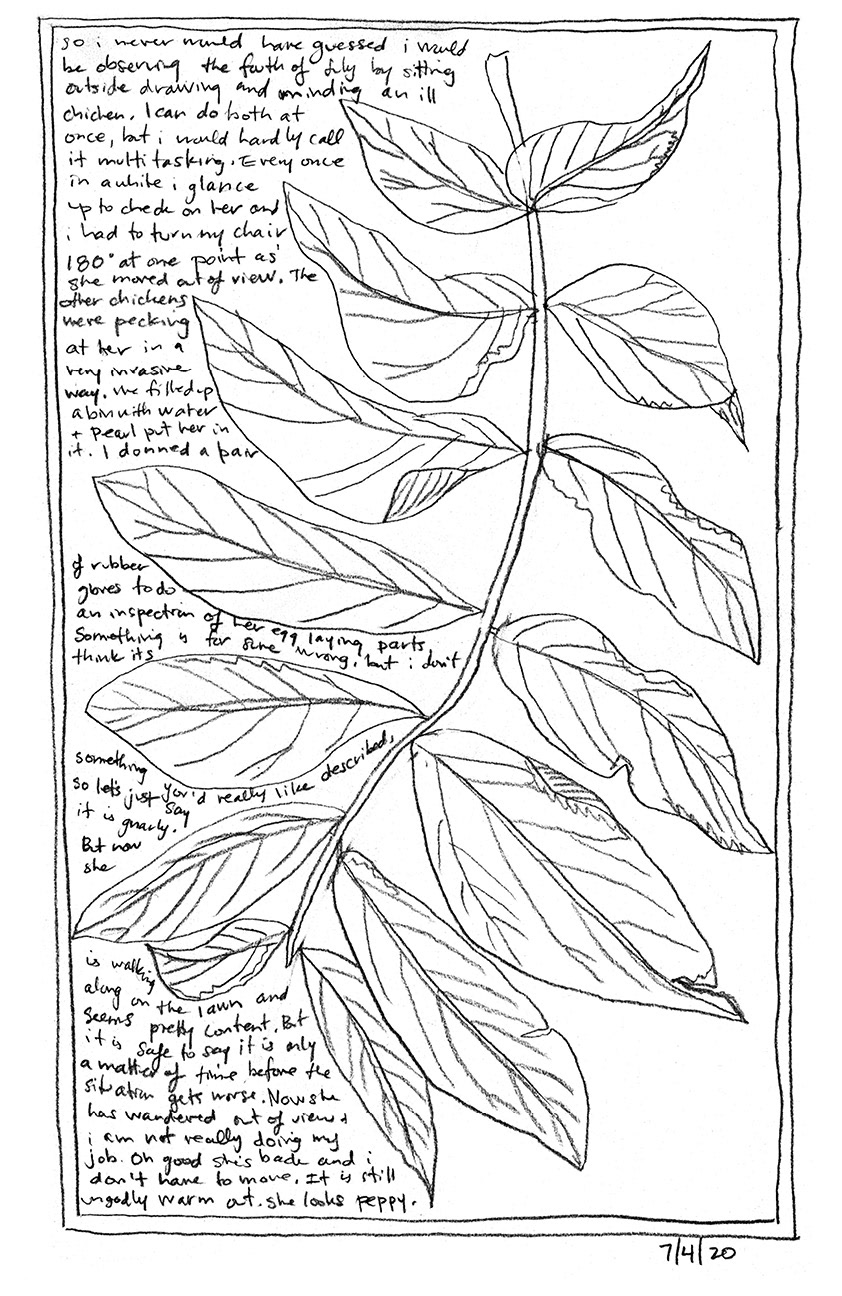 so i never would have guessed i would
be observing the fouth of July by sitting
outside drawing and minding an ill
chicken. I can do both at
once, but i would hardly call
it multitasking. Every once
in awhile i glance
up to check on her and
i had to turn my chair
180° at one point as
she moved out of view. The
other chickens
were pecking
at her in a
very invasive
way. We filled up
a bin with water
+ Pearl put her in
it. I donned a pair
of rubber
gloves to do
an inspection of her egg laying parts
Something is for sure wrong, but i don't
think its
something you'd really like described,
so let's just say
it is gnarly.
But now
she
is walking
along on the lawn and
seems pretty content. But
it is safe to say it is only
a matter of time before the
situation gets worse. Now she
has wandered out of view +
i am not really doing my
job. Oh good she's back and i
don't have to move. It is still
ungodly warm out. She looks peppy.
7/4/20